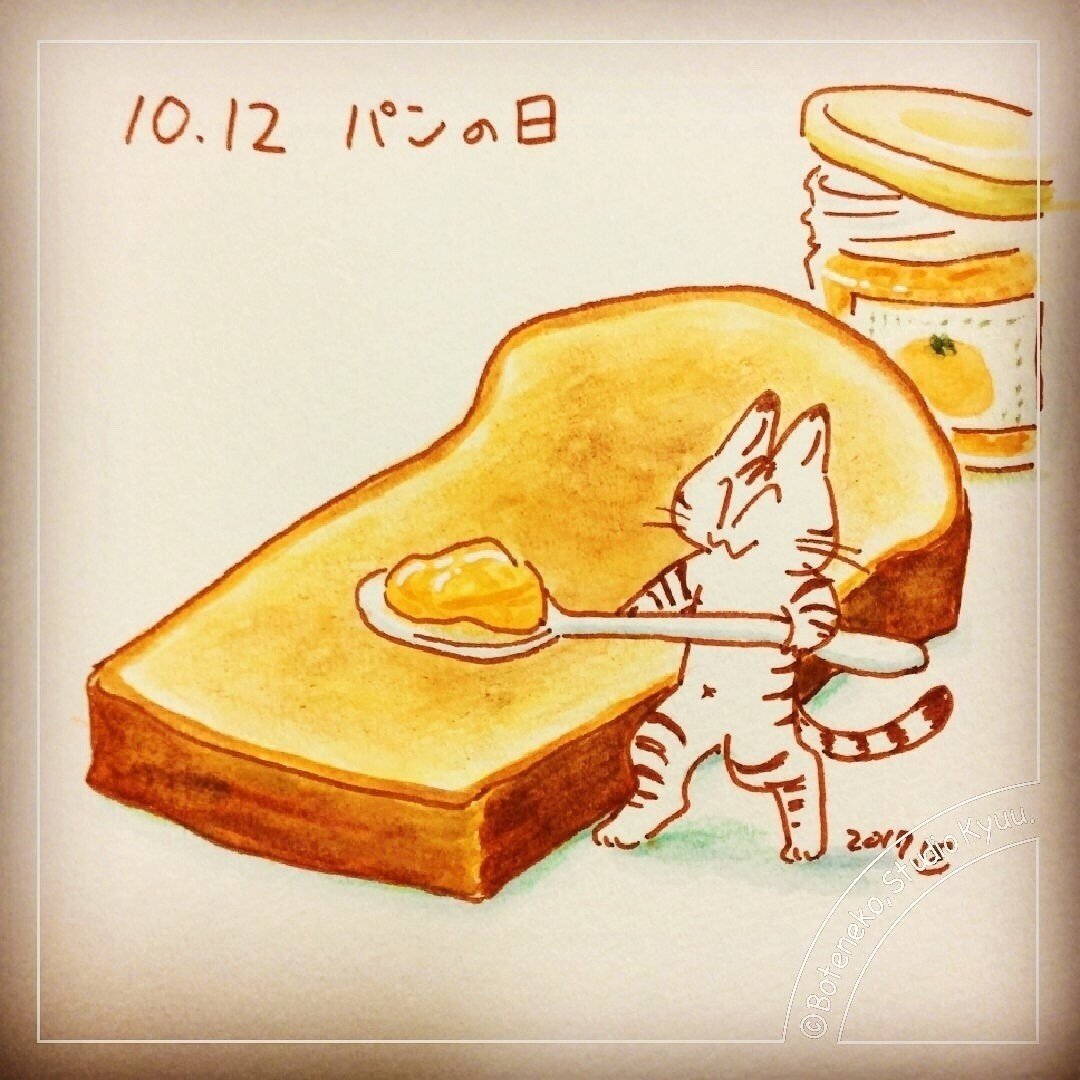 10.12 パンの日
2017
©Boteneko, Studio Kyuu.